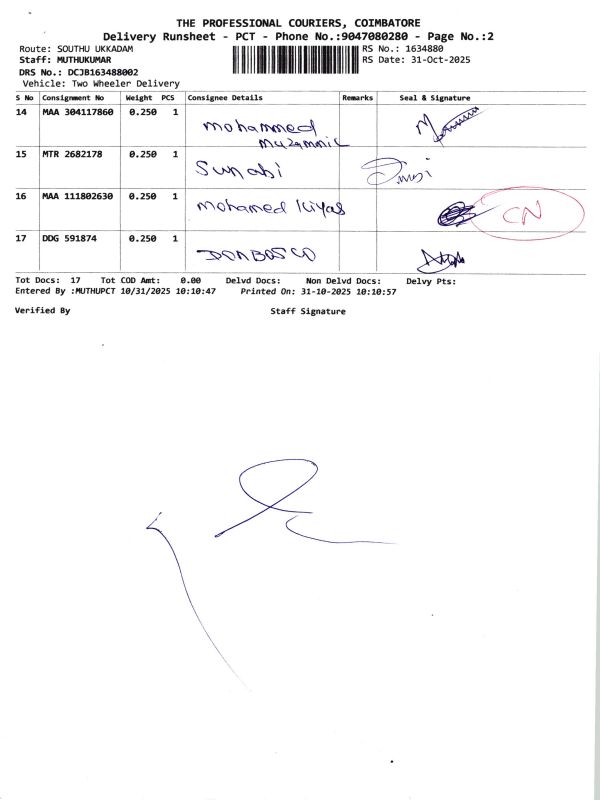 THE PROFESSIONAL COURIERS, COIMBATORE
Delivery Runsheet - PCT - Phone No.:9047080280 - Page No.:2
Route: SOUTHU UKKADAM RS No.: 1634880
Staff: MUTHUKUMAR RS Date: 31-Oct-2025
DRS No.: DCJB163488002
Vehicle: Two Wheeler Delivery
S No Consignment No Weight PCS Consignee Details Remarks Seal & Signature
14 MAA 304117860 0.250 1 mohammed
muzammil
15 MTR 2682178 0.250 1 Sunabi
16 MAA 111802630 0.250 1 mohamed iliyas CN
17 DDG 591874 0.250 1 DONBOSCO
Tot Docs: 17 Tot COD Amt: 0.00 Delvd Docs: Non Delvd Docs: Delvy Pts:
Entered By :MUTHUPCT 10/31/2025 10:10:47 Printed On: 31-10-2025 10:10:57
Verified By Staff Signature